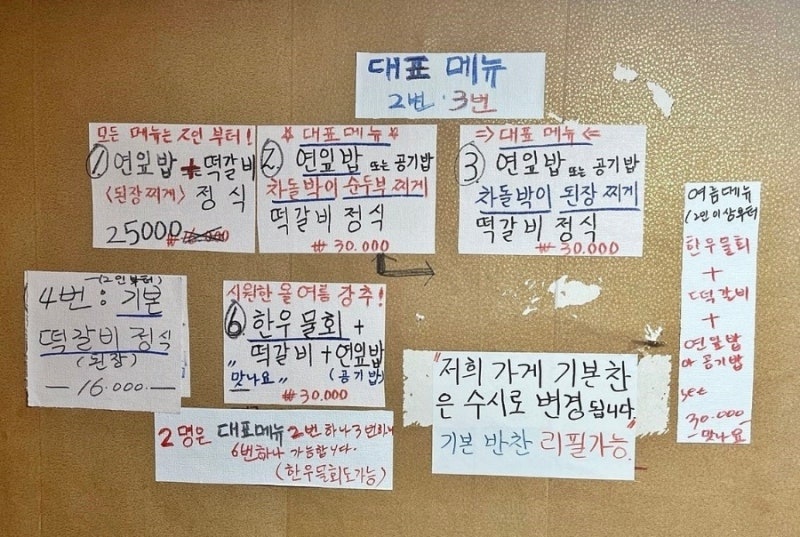 대표 메뉴
2번 · 3번
모든 메뉴는 2인 부터!
① 연잎밥 + 떡갈비
〈된장찌게〉 정식
25000
☆ 대표메뉴 ☆
② 연잎밥 또는 공기밥
차돌박이 순두부 찌게
떡갈비 정식
₩ 30.000
⇒ 대표메뉴 ⇐
③ 연잎밥 또는 공기밥
차돌박이 된장 찌게
떡갈비 정식
₩ 30.000
여름메뉴
(2인이상부터
한우물회
+
떡갈비
+
연잎밥
or 공기밥
set
30.000
- 맛나요
(2인부터)
4번 : 기본
떡갈비 정식
(된장)
— 16.000 —
시원한 올 여름 강추!
⑥ 한우물회 +
떡갈비 + 연잎밥
"맛나요" (공기밥)
₩ 30.000
"저희 가게 기본찬
은 수시로 변경됩니다."
기본 반찬 리필가능.
2명은 대표메뉴 2번하나 3번하나
6번하나 가능합니다.
(한우물회도가능)